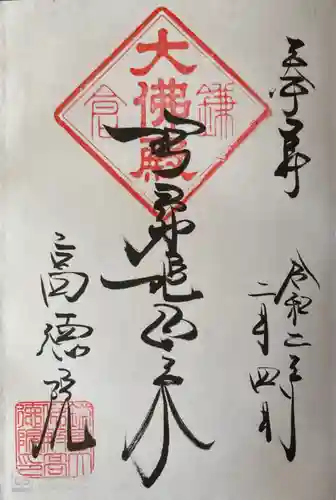 奉拝
令和二年
二月四日
大佛殿
鎌倉
阿弥陀如来
高徳院